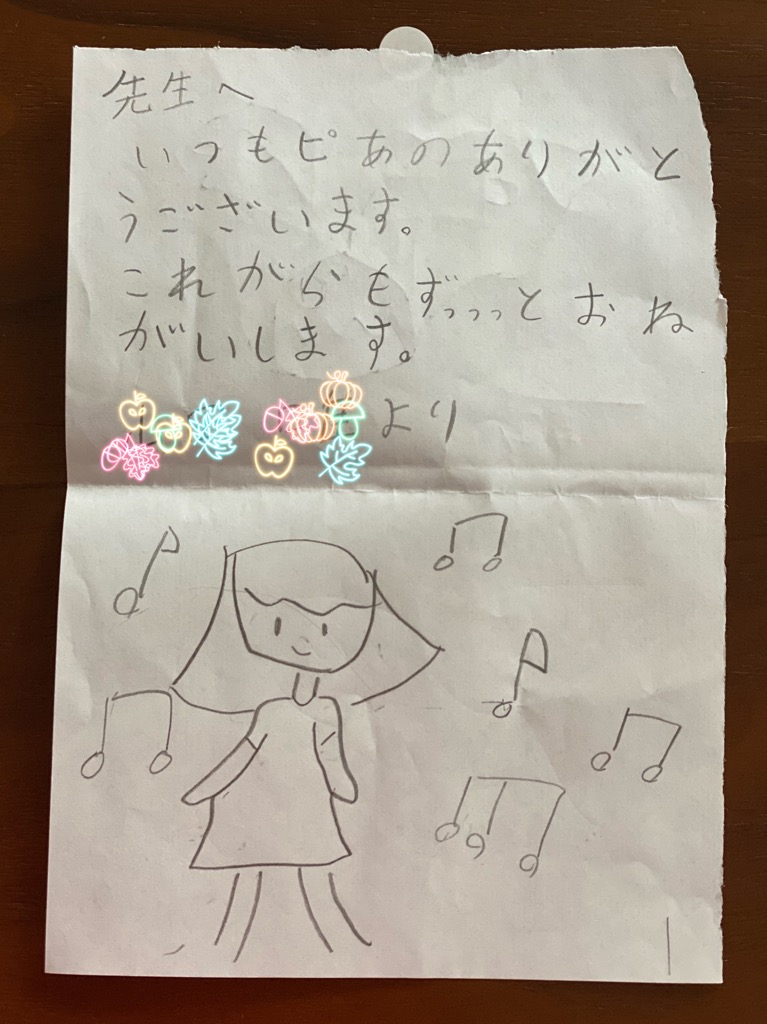 先生へ
いつもピあのありがと
うございます。
これがらもずっっっとおね
がいします。
より